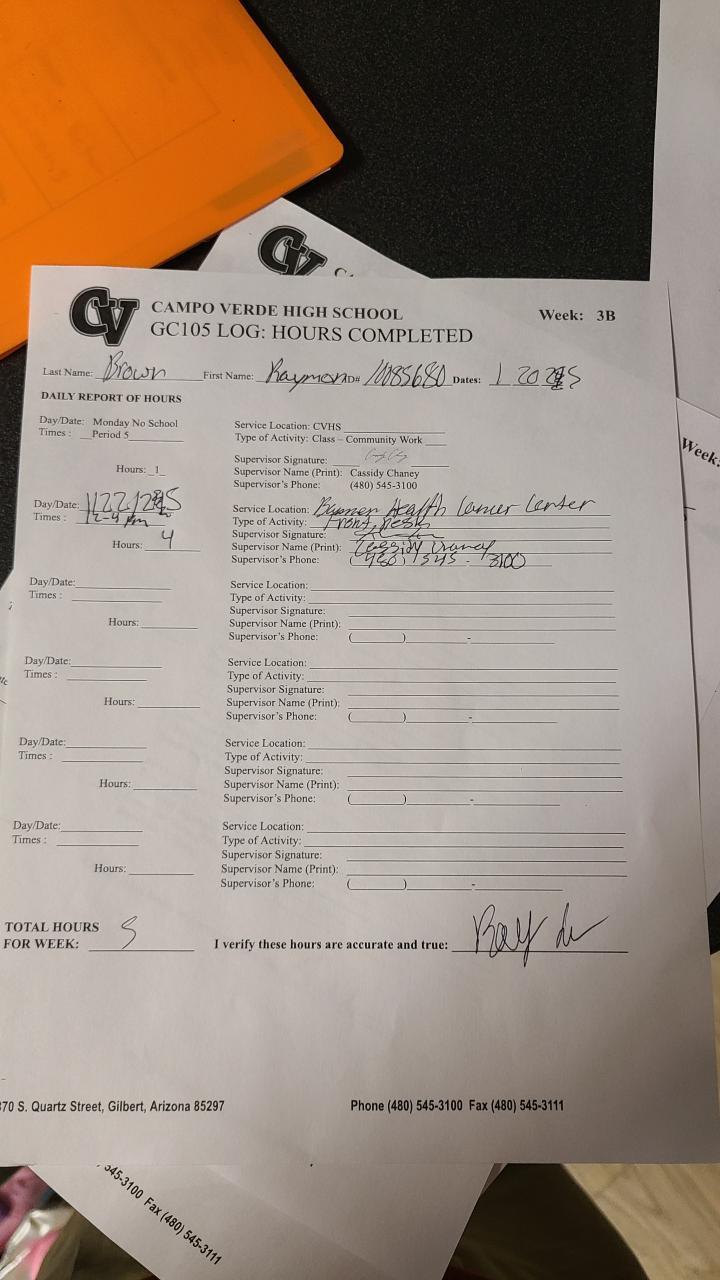 CV
CV
CAMPO VERDE HIGH SCHOOL
Week: 3B
GC105 LOG: HOURS COMPLETED
Last Name: Brown First Name: Raymon ID# 10085680 Dates: 1 20
DAILY REPORT OF HOURS
Day/Date: Monday No School
Times : Period 5
Hours: 1
Service Location: CVHS
Type of Activity: Class – Community Work
Supervisor Signature:
Supervisor Name (Print): Cassidy Chaney
Supervisor's Phone: (480) 545-3100
Day/Date: 1/22/
Times : 12-4 pm
Hours: 4
Service Location: Banner Health Cancer Center
Type of Activity: Front Desk
Supervisor Signature:
Supervisor Name (Print): Cassidy
Supervisor's Phone: (480) 545 - 3100
Day/Date:
Times :
Hours:
Service Location:
Type of Activity:
Supervisor Signature:
Supervisor Name (Print):
Supervisor's Phone: ( ) -
Day/Date:
Times :
Hours:
Service Location:
Type of Activity:
Supervisor Signature:
Supervisor Name (Print):
Supervisor's Phone: ( ) -
Day/Date:
Times :
Hours:
Service Location:
Type of Activity:
Supervisor Signature:
Supervisor Name (Print):
Supervisor's Phone: ( ) -
Day/Date:
Times :
Hours:
Service Location:
Type of Activity:
Supervisor Signature:
Supervisor Name (Print):
Supervisor's Phone: ( ) -
TOTAL HOURS
FOR WEEK: 5
I verify these hours are accurate and true: Ray
70 S. Quartz Street, Gilbert, Arizona 85297
Phone (480) 545-3100 Fax (480) 545-3111
Week:
545-3100 Fax (480) 545-3111